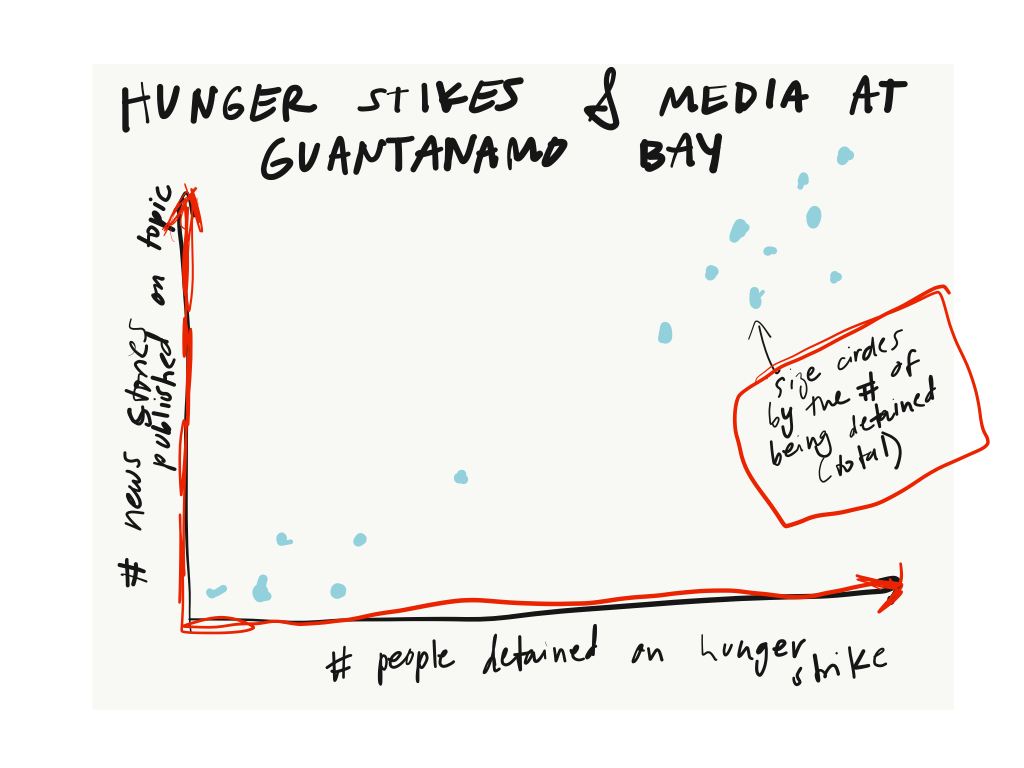 HUNGER STIKES & MEDIA AT
GUANTANAMO BAY
# news stories
published on topic
size circles
by the # of
being detained
(total)
# people detained on hunger
strike